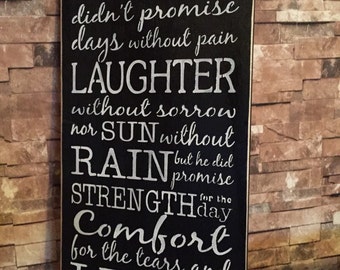 didn't promise
days without pain
LAUGHTER
without sorrow
nor SUN without
RAIN but he did promise
STRENGTH for the day
Comfort
for the tears and